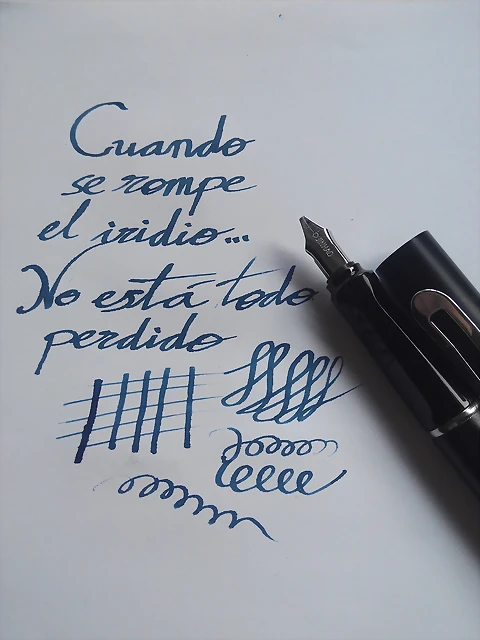 Cuando
se rompe
el iridio...
No está todo
perdido
JINHAO